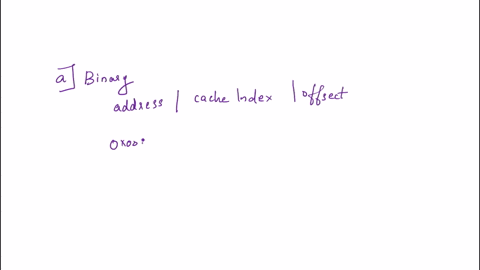 a] Binary
address | cache Index | offsect
0x00